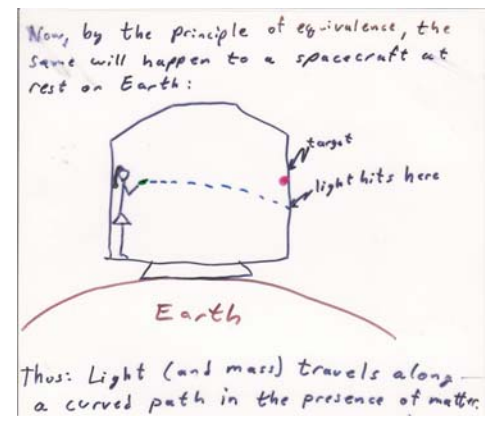 Now, by the principle of equivalence, the
same will happen to a spacecraft at
rest on Earth:
target
light hits here
Earth
Thus: Light (and mass) travels along
a curved path in the presence of matter.